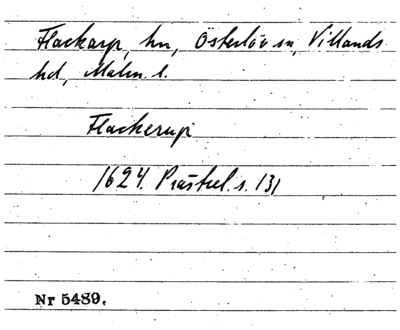 Flackarp, hn, Österlöv sn, Villands
hd, Malm. l.
Flackerup
1624. Prästrel. s. 131
Nr 5489.